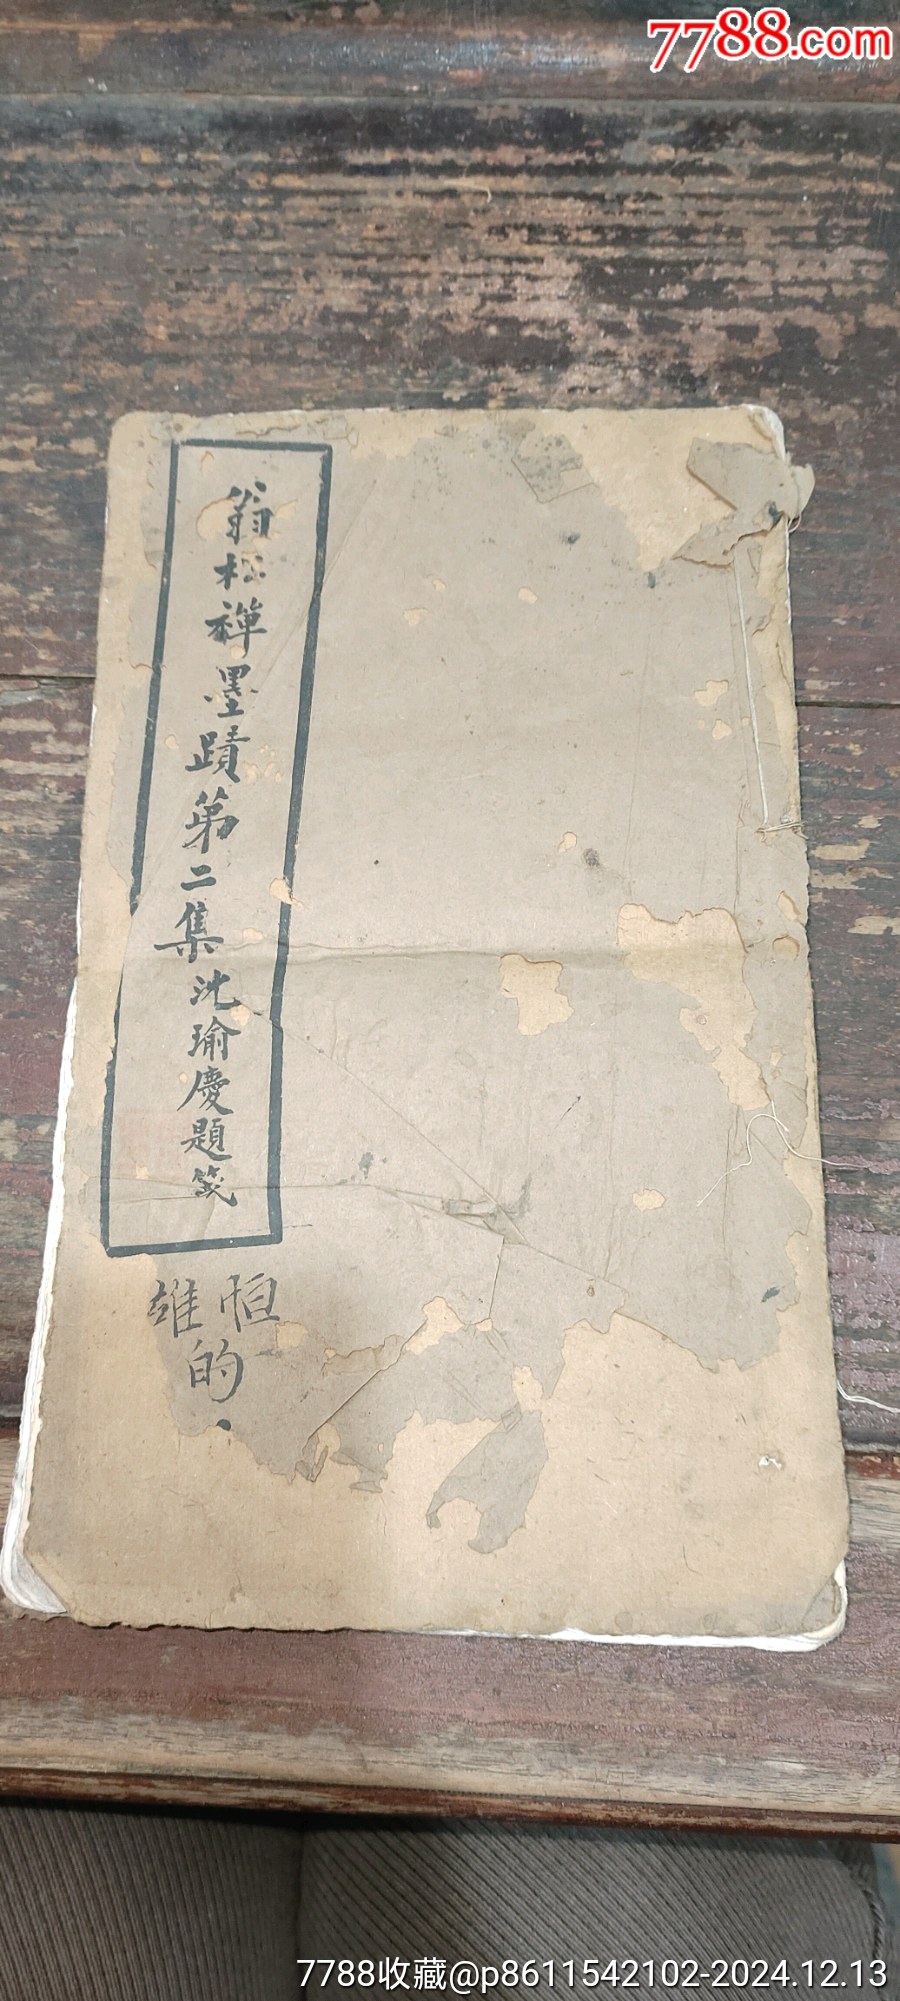 7788.com
翁松禅墨蹟第二集沈瑜慶題箋
恒
雄
的
7788收藏@p8611542102-2024.12.13